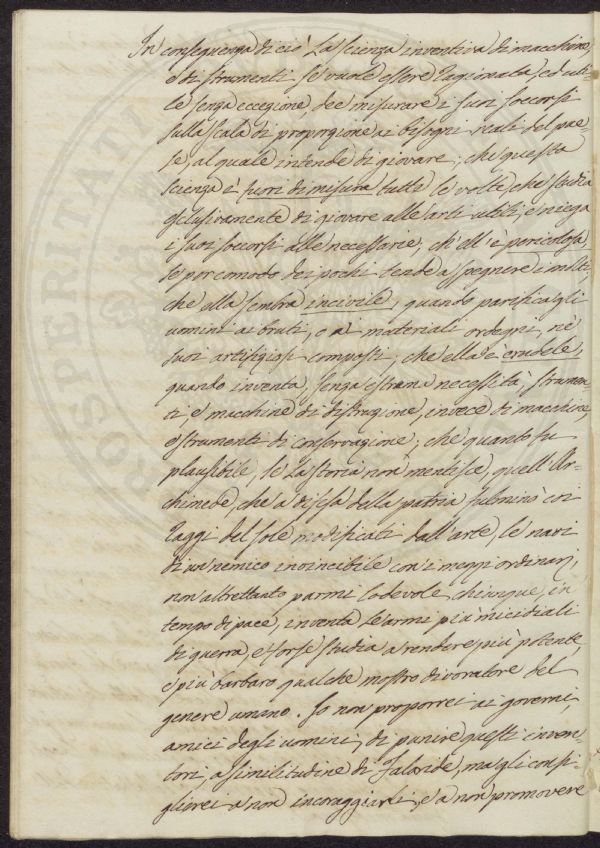 In conseguenza di ciò La scienza inventiva di macchine,
e di strumenti se vuole essere ragionata, ed uti-
le senza eccezione, dee misurare i suoi soccorsi
sulla scala di proporzione ai bisogni reali del pae-
se al quale intende di giovare; chè questa
scienza è fuori di misura tutte le volte, che studia
esclusivamente di giovare alle arti utili, e niega
i suoi soccorsi alle necessarie, ch'ell'è pericolosa
se per comodo dei pochi tende a spegnere i molti,
che ella sembra incivile, quando parifica gli
uomini ai bruti, o ai materiali ordegni, nè
suoi artifiziosi composti; che ella è crudele,
quando inventa, senza estrema necessità, strumen-
ti e macchine di distruzione, invece di macchine,
e strumenti di conservazione; che quanto fu
plausibile, se La storia non mentisce, quell'Ar-
chimede, che a difesa della patria fulminò coi
raggi del sole modificati dall'arte, le navi
di un nemico invincibile con i mezzi ordinarj,
non altrettanto parmi lodevole chiunque, in
tempo di pace, inventa le armi più micidiali
di guerra, e forse studia a rendere più potente,
e più barbaro qualche mostro divoratore del
genere umano. Io non proporrei ai governi,
amici degli uomini, di punire questi inven-
tori, a similitudine di Falaride, ma gli consi-
glierei a non incoraggiarli, e a non promovere
PROSPERITATI